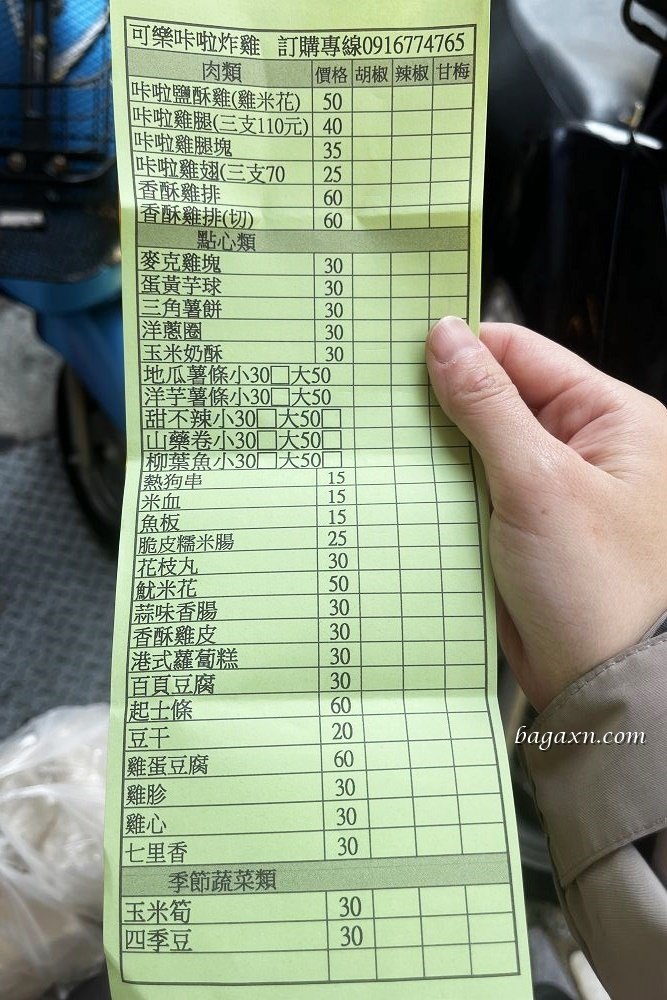 可樂咔啦炸雞 訂購專線0916774765
肉類 價格 胡椒 辣椒 甘梅
咔啦鹽酥雞(雞米花) 50
咔啦雞腿(三支110元) 40
咔啦雞腿塊 35
咔啦雞翅(三支70 25
香酥雞排 60
香酥雞排(切) 60
點心類
麥克雞塊 30
蛋黃芋球 30
三角薯餅 30
洋蔥圈 30
玉米奶酥 30
地瓜薯條小30□大50
洋芋薯條小30□大50
甜不辣小30□大50□
山藥卷小30□大50□
柳葉魚小30□大50□
熱狗串 15
米血 15
魚板 15
脆皮糯米腸 25
花枝丸 30
魷米花 50
蒜味香腸 30
香酥雞皮 30
港式蘿蔔糕 30
百頁豆腐 30
起士條 60
豆干 20
雞蛋豆腐 60
雞胗 30
雞心 30
七里香 30
季節蔬菜類
玉米筍 30
四季豆 30
bagaxn.com